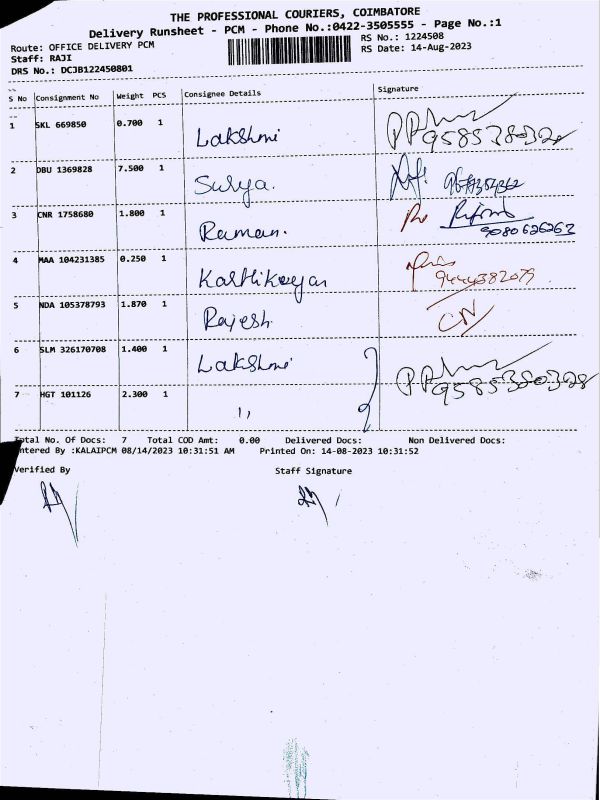 THE PROFESSIONAL COURIERS, COIMBATORE
Delivery Runsheet - PCM - Phone No.:0422-3505555 - Page No.:1
Route: OFFICE DELIVERY PCM
RS No.: 1224508
Staff: RAJI
RS Date: 14-Aug-2023
DRS No.: DCJB122450801
S No Consignment No Weight PCS Consignee Details Signature
1 SKL 669850 0.700 1 Lakshmi
2 DBU 1369828 7.500 1 Surya.
3 CNR 1758680 1.800 1 Raman. 9080626262
4 MAA 104231385 0.250 1 Karthikeyan 9444382079
5 NDA 105378793 1.870 1 Rajesh
6 SLM 326170708 1.400 1 Lakshmi
7 HGT 101126 2.300 1 ''
Total No. Of Docs: 7 Total COD Amt: 0.00 Delivered Docs: Non Delivered Docs:
ntered By :KALAIPCM 08/14/2023 10:31:51 AM Printed On: 14-08-2023 10:31:52
Verified By Staff Signature